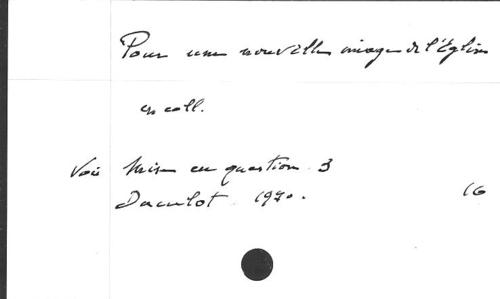 Pour une nouvelle image de l'Eglise
en coll.
Voir Mise en question 3
Duculot. 1970. 16